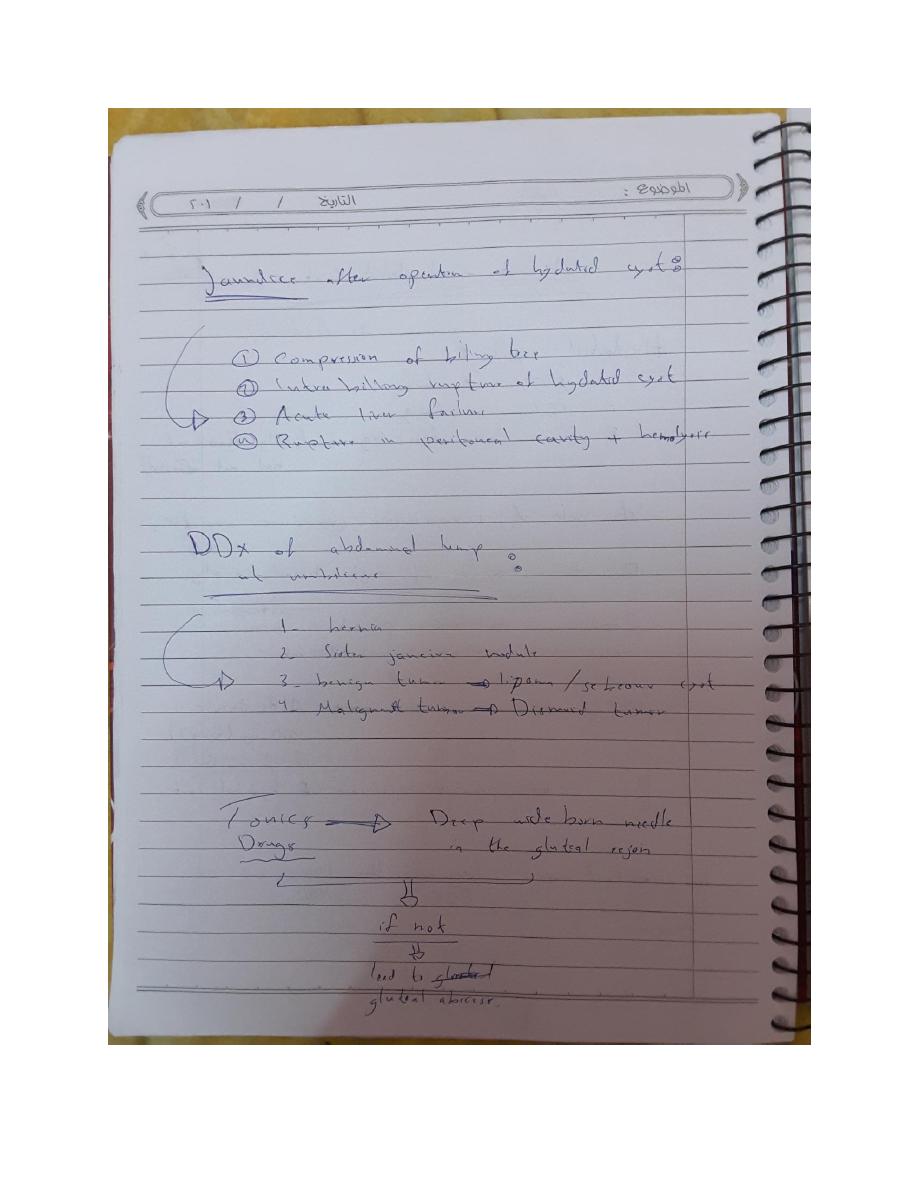 الموضوع :
التاريخ / / ٢٠١
Jaundice after operation of hydatid cyst :
① Compression of biliary tree
② Intra biliary rupture of hydatid cyst
③ Acute liver failure
④ Rupture in peritoneal cavity + hemolysis
DDx of abdominal lump :
at umbilicus
1- hernia
2- Sister
nodule
3- benign tumor → lipoma / sebeour cyst
4- Malignant tumor → Dismoid tumor
Tonics → Deep wide born needle
Drugs in the gluteal region
if not
lead to
gluteal abscess.